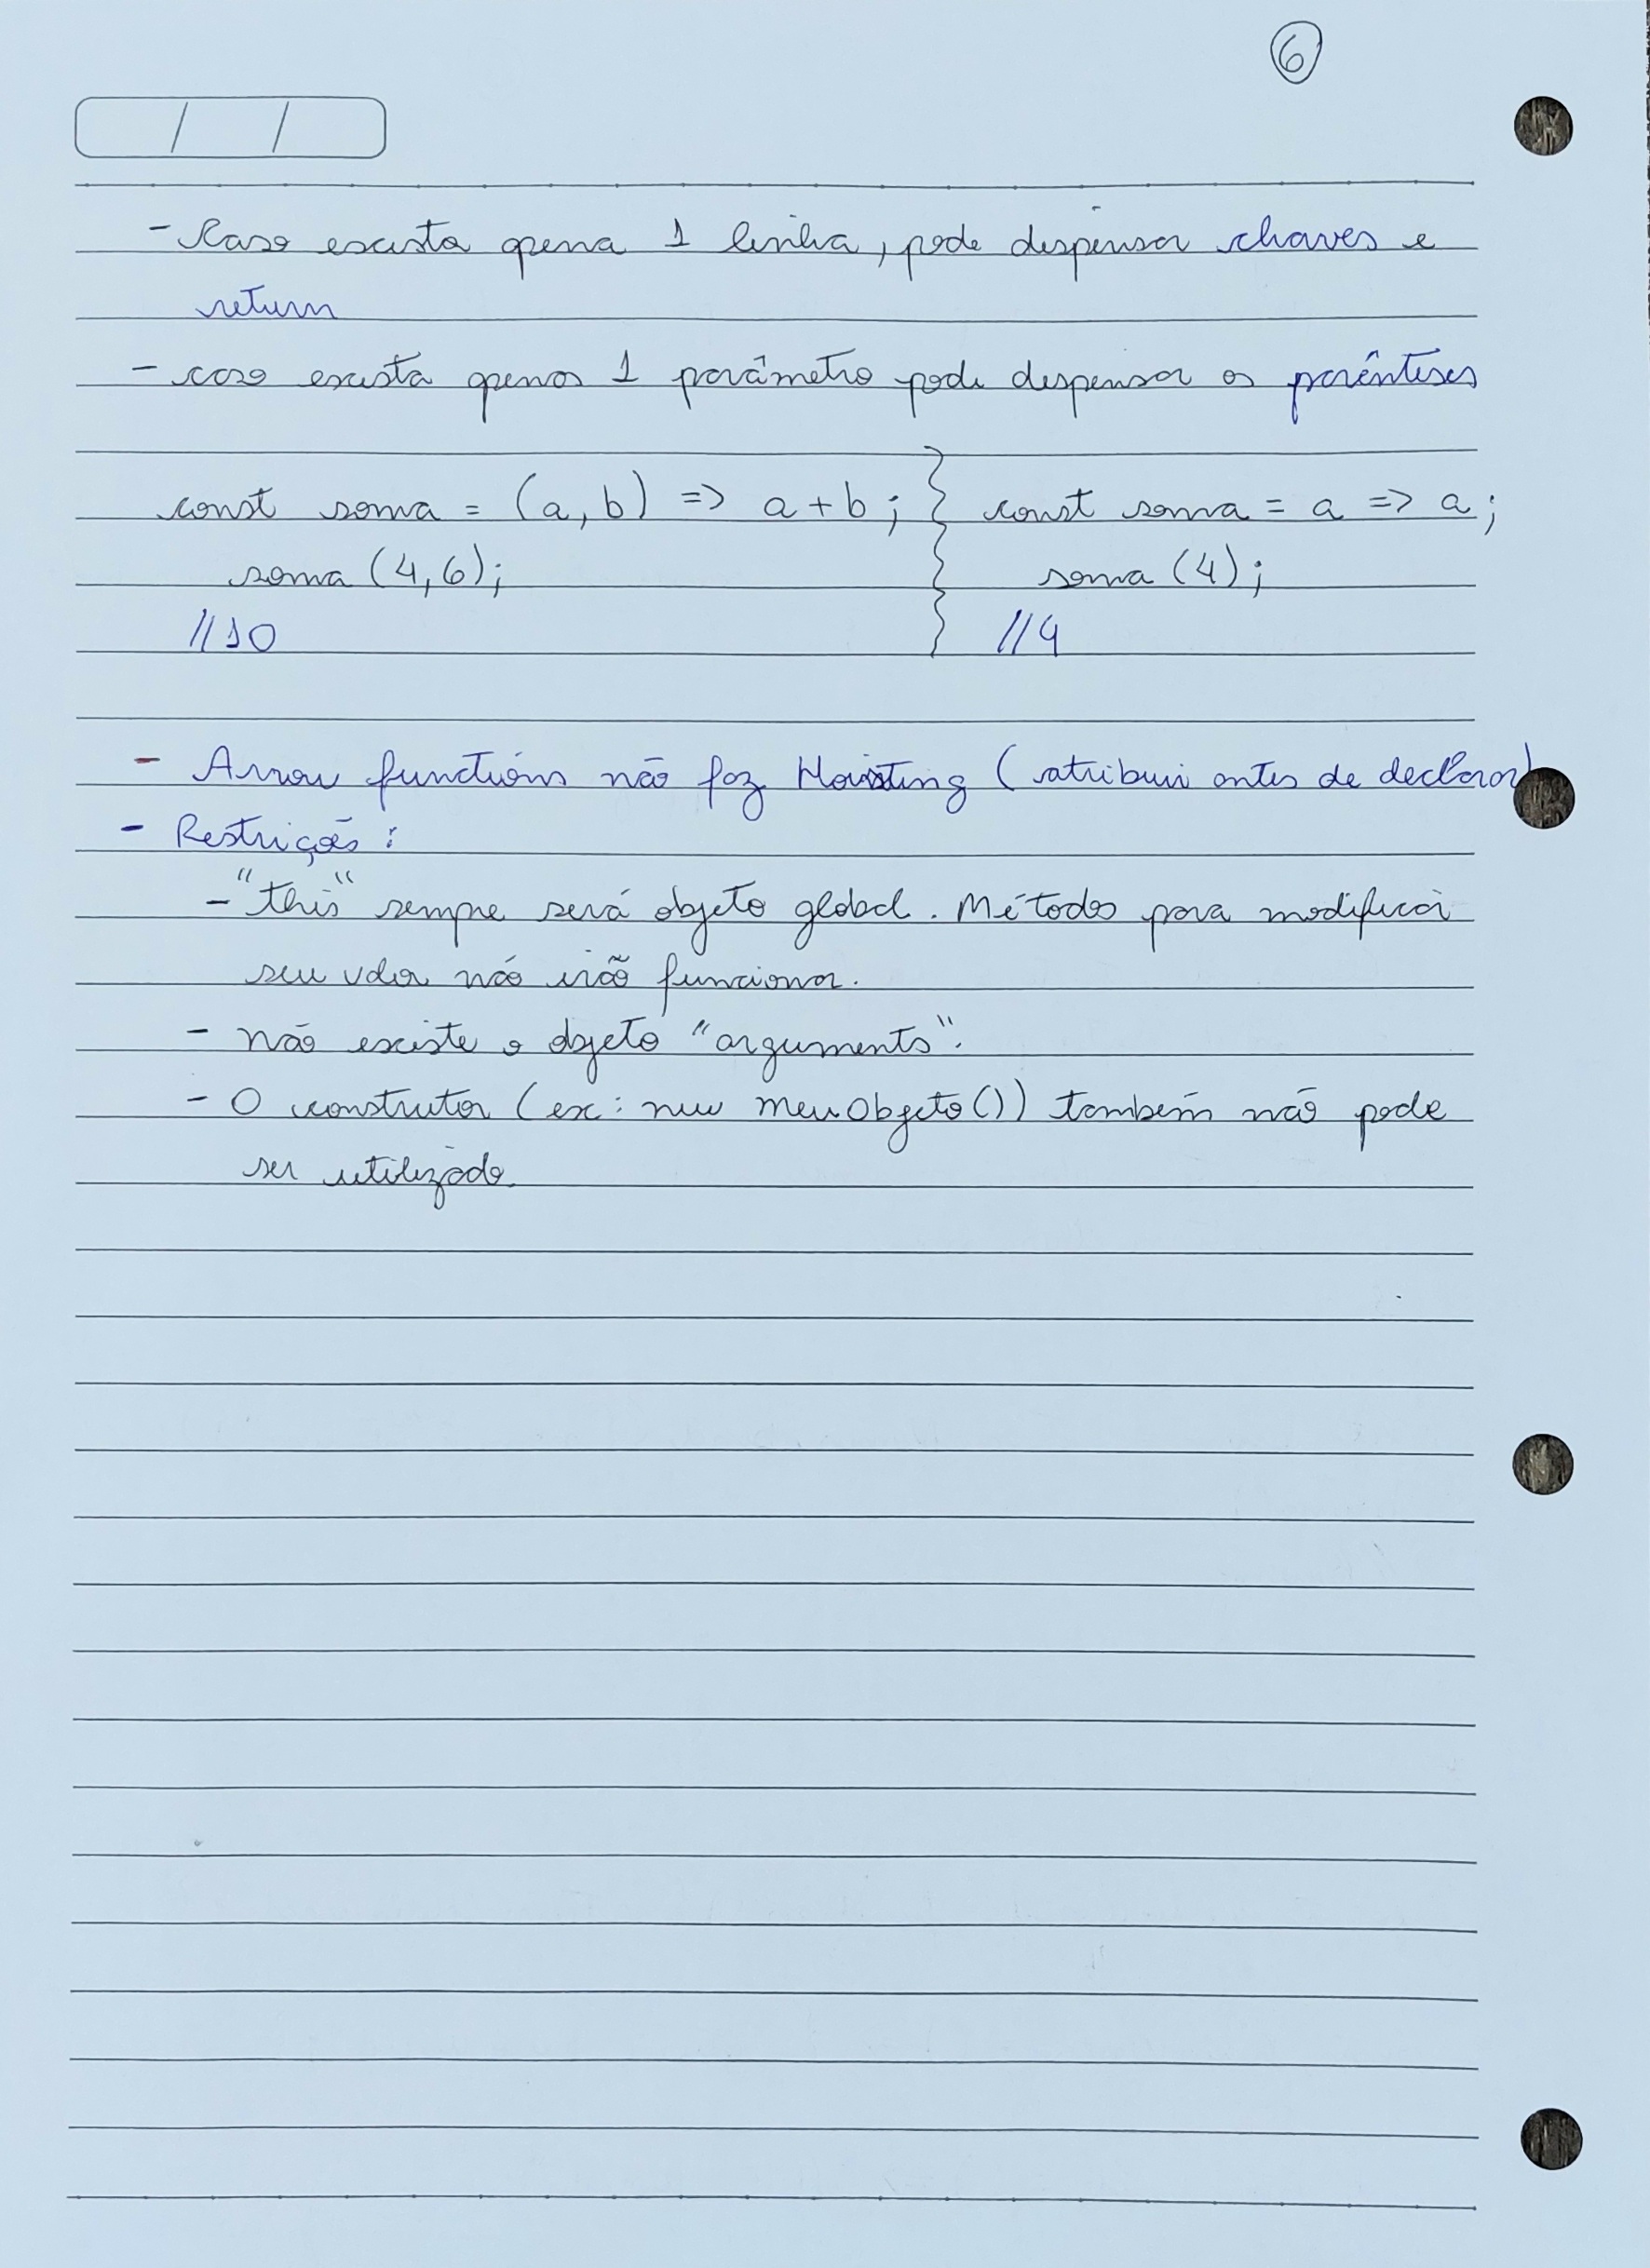 6
/ /
- Caso exista apena 1 linha, pode dispensar chaves e
return
- caso exista apenas 1 parâmetro pode dispensar os parênteses
const soma = (a, b) => a + b ; } const soma = a => a ;
soma (4, 6); } soma (4) ;
//10 } //4
- Arrow functions não faz Hoisting (atribui antes de declarar)
- Restrições :
- "this" sempre será objeto global. Métodos para modificar
seu valor não irão funcionar.
- não existe o objeto "arguments".
- O construtor (ex: new meuObjeto()) também não pode
ser utilizado